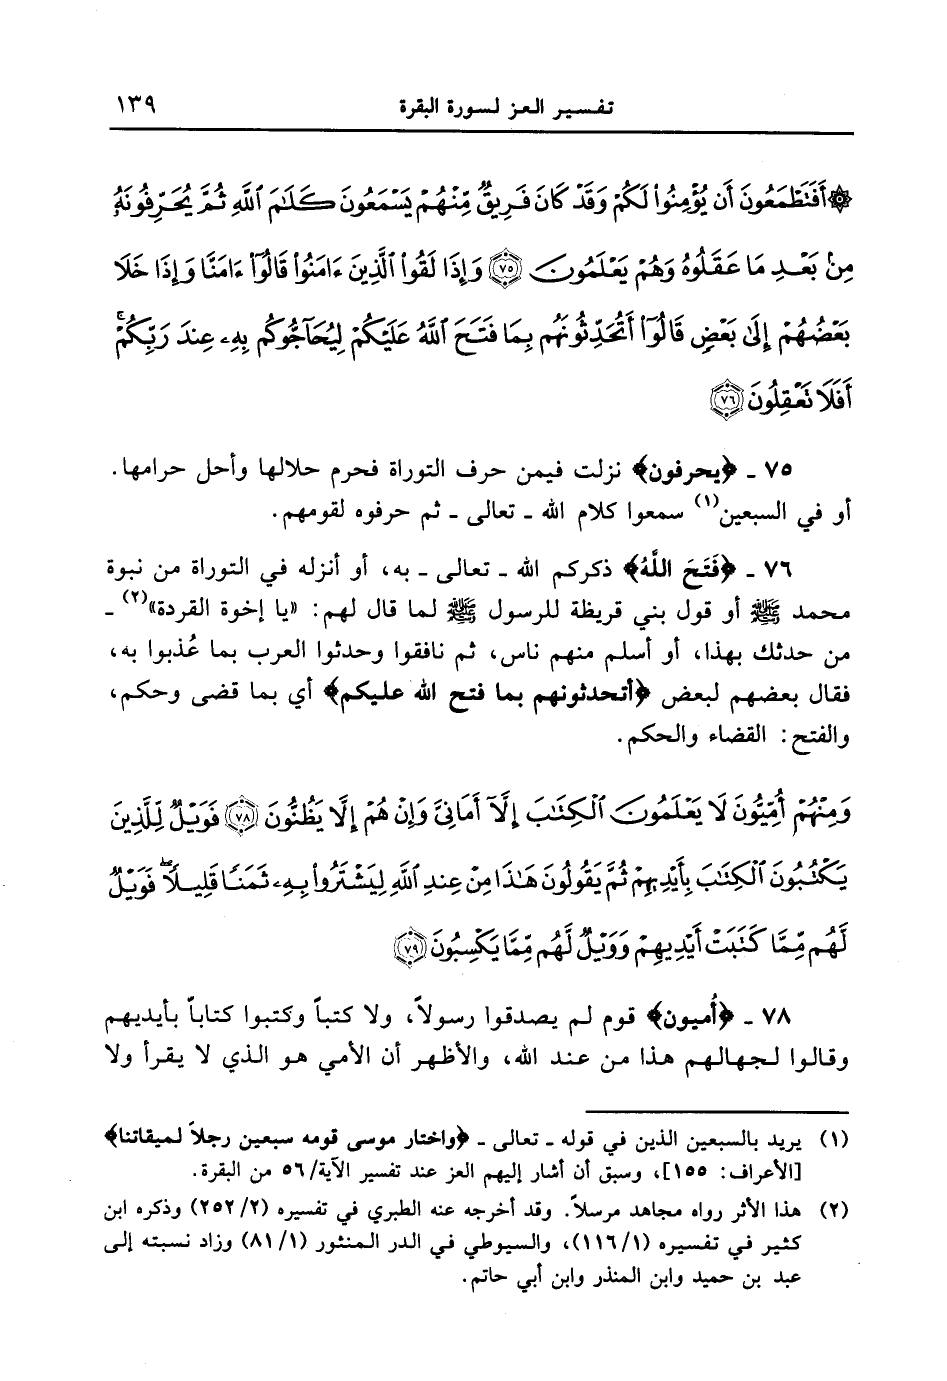 تفسير العز لسورة البقرة ١٣٩
۞ أَفَتَطْمَعُونَ أَن يُؤْمِنُوا۟ لَكُمْ وَقَدْ كَانَ فَرِيقٌ مِّنْهُمْ يَسْمَعُونَ كَلَٰمَ ٱللَّهِ ثُمَّ يُحَرِّفُونَهُۥ
مِنۢ بَعْدِ مَا عَقَلُوهُ وَهُمْ يَعْلَمُونَ ﴿٧٥﴾ وَإِذَا لَقُوا۟ ٱلَّذِينَ ءَامَنُوا۟ قَالُوٓا۟ ءَامَنَّا وَإِذَا خَلَا
بَعْضُهُمْ إِلَىٰ بَعْضٍ قَالُوٓا۟ أَتُحَدِّثُونَهُم بِمَا فَتَحَ ٱللَّهُ عَلَيْكُمْ لِيُحَآجُّوكُم بِهِۦ عِندَ رَبِّكُمْ ۚ
أَفَلَا تَعْقِلُونَ ﴿٧٦﴾
٧٥ ـ ﴿يحرفون﴾ نزلت فيمن حرف التوراة فحرم حلالها وأحل حرامها.
أو في السبعين(١) سمعوا كلام الله ـ تعالى ـ ثم حرفوه لقومهم.
٧٦ ـ ﴿فَتَحَ اللَّهُ﴾ ذكركم الله ـ تعالى ـ به، أو أنزله في التوراة من نبوة
محمد ﷺ أو قول بني قريظة للرسول ﷺ لما قال لهم: «يا إخوة القردة»(٢) ـ
من حدثك بهذا، أو أسلم منهم ناس، ثم نافقوا وحدثوا العرب بما عُذبوا به،
فقال بعضهم لبعض ﴿أتحدثونهم بما فتح الله عليكم﴾ أي بما قضى وحكم،
والفتح: القضاء والحكم.
وَمِنْهُمْ أُمِّيُّونَ لَا يَعْلَمُونَ ٱلْكِتَٰبَ إِلَّآ أَمَانِىَّ وَإِنْ هُمْ إِلَّا يَظُنُّونَ ﴿٧٨﴾ فَوَيْلٌ لِّلَّذِينَ
يَكْتُبُونَ ٱلْكِتَٰبَ بِأَيْدِيهِمْ ثُمَّ يَقُولُونَ هَٰذَا مِنْ عِندِ ٱللَّهِ لِيَشْتَرُوا۟ بِهِۦ ثَمَنًا قَلِيلًا ۖ فَوَيْلٌ
لَّهُم مِّمَّا كَتَبَتْ أَيْدِيهِمْ وَوَيْلٌ لَّهُم مِّمَّا يَكْسِبُونَ ﴿٧٩﴾
٧٨ ـ ﴿أُميون﴾ قوم لم يصدقوا رسولاً، ولا كتباً وكتبوا كتاباً بأيديهم
وقالوا لجهالهم هذا من عند الله، والأظهر أن الأمي هو الذي لا يقرأ ولا
(١) يريد بالسبعين الذين في قوله ـ تعالى ـ ﴿واختار موسى قومه سبعين رجلاً لميقاتنا﴾
[الأعراف: ١٥٥]، وسبق أن أشار إليهم العز عند تفسير الآية/٥٦ من البقرة.
(٢) هذا الأثر رواه مجاهد مرسلاً. وقد أخرجه عنه الطبري في تفسيره (٢/٢٥٢) وذكره ابن
كثير في تفسيره (١/١١٦)، والسيوطي في الدر المنثور (١/٨١) وزاد نسبته إلى
عبد بن حميد وابن المنذر وابن أبي حاتم.